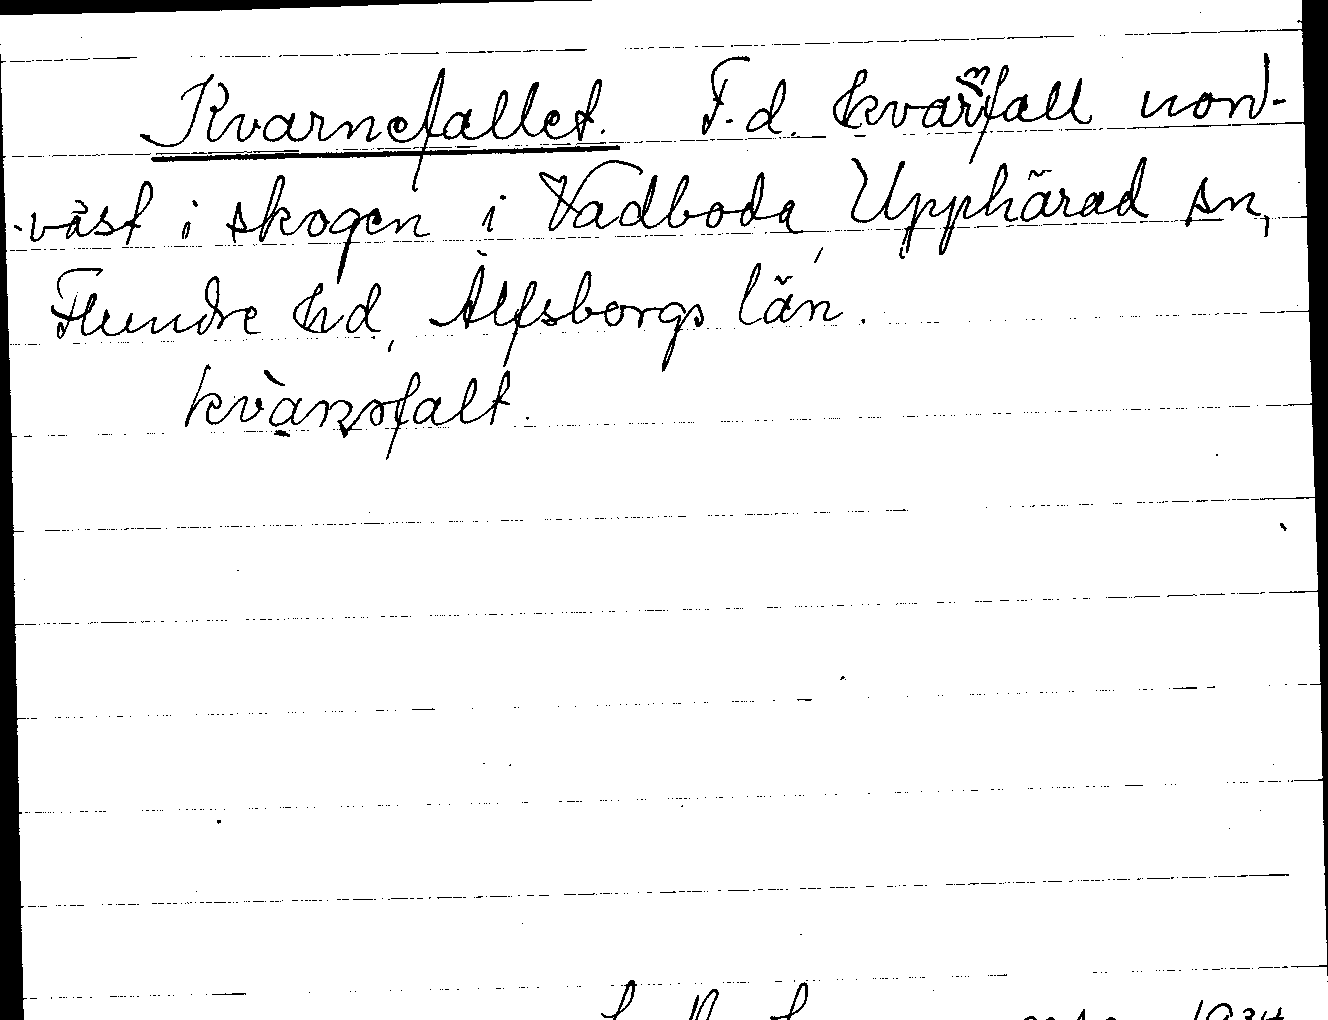 Kvarnefallet. F.d. kvarnfall nord-
väst i skogen i Vadboda, Upphärad sn,
Flundre hd, Älfsborgs län.
kvànɒfalt.
1934